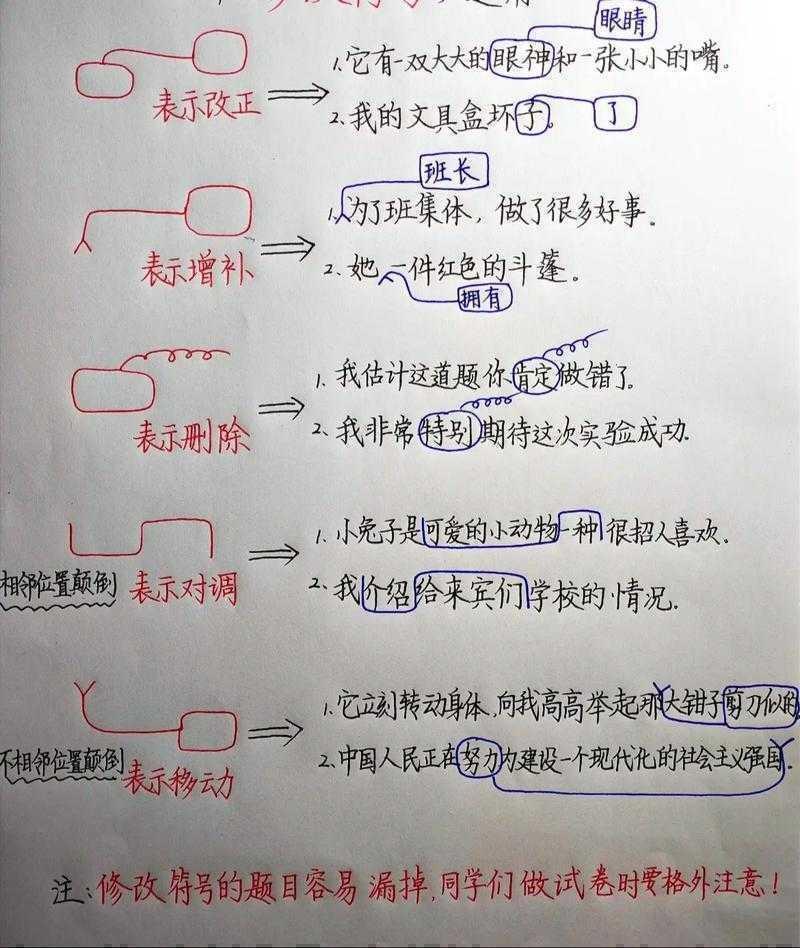 眼睛
1.它有一双大大的眼神和一张小小的嘴。
表示改正
2.我的文具盒坏子。 了
班长
1.为了班集体，做了很多好事。
表示增补
2.她一件红色的斗蓬。
拥有
1.我估计这道题你肯定做错了。
表示删除
2.我非常特别期待这次实验成功.
1.小兔子是可爱的小动物一种很招人喜欢.
相邻位置颠倒 表示对调
2.我介绍给来宾们学校的情况.
1.它立刻转动身体,向我高高举起那大钳子剪刀似的
不相邻位置颠倒 表示移动
2.中国人民正在努力为建设一个现代化的社会主义强国.
注:修改符号的题目容易漏掉,同学们做试卷时要格外注意!